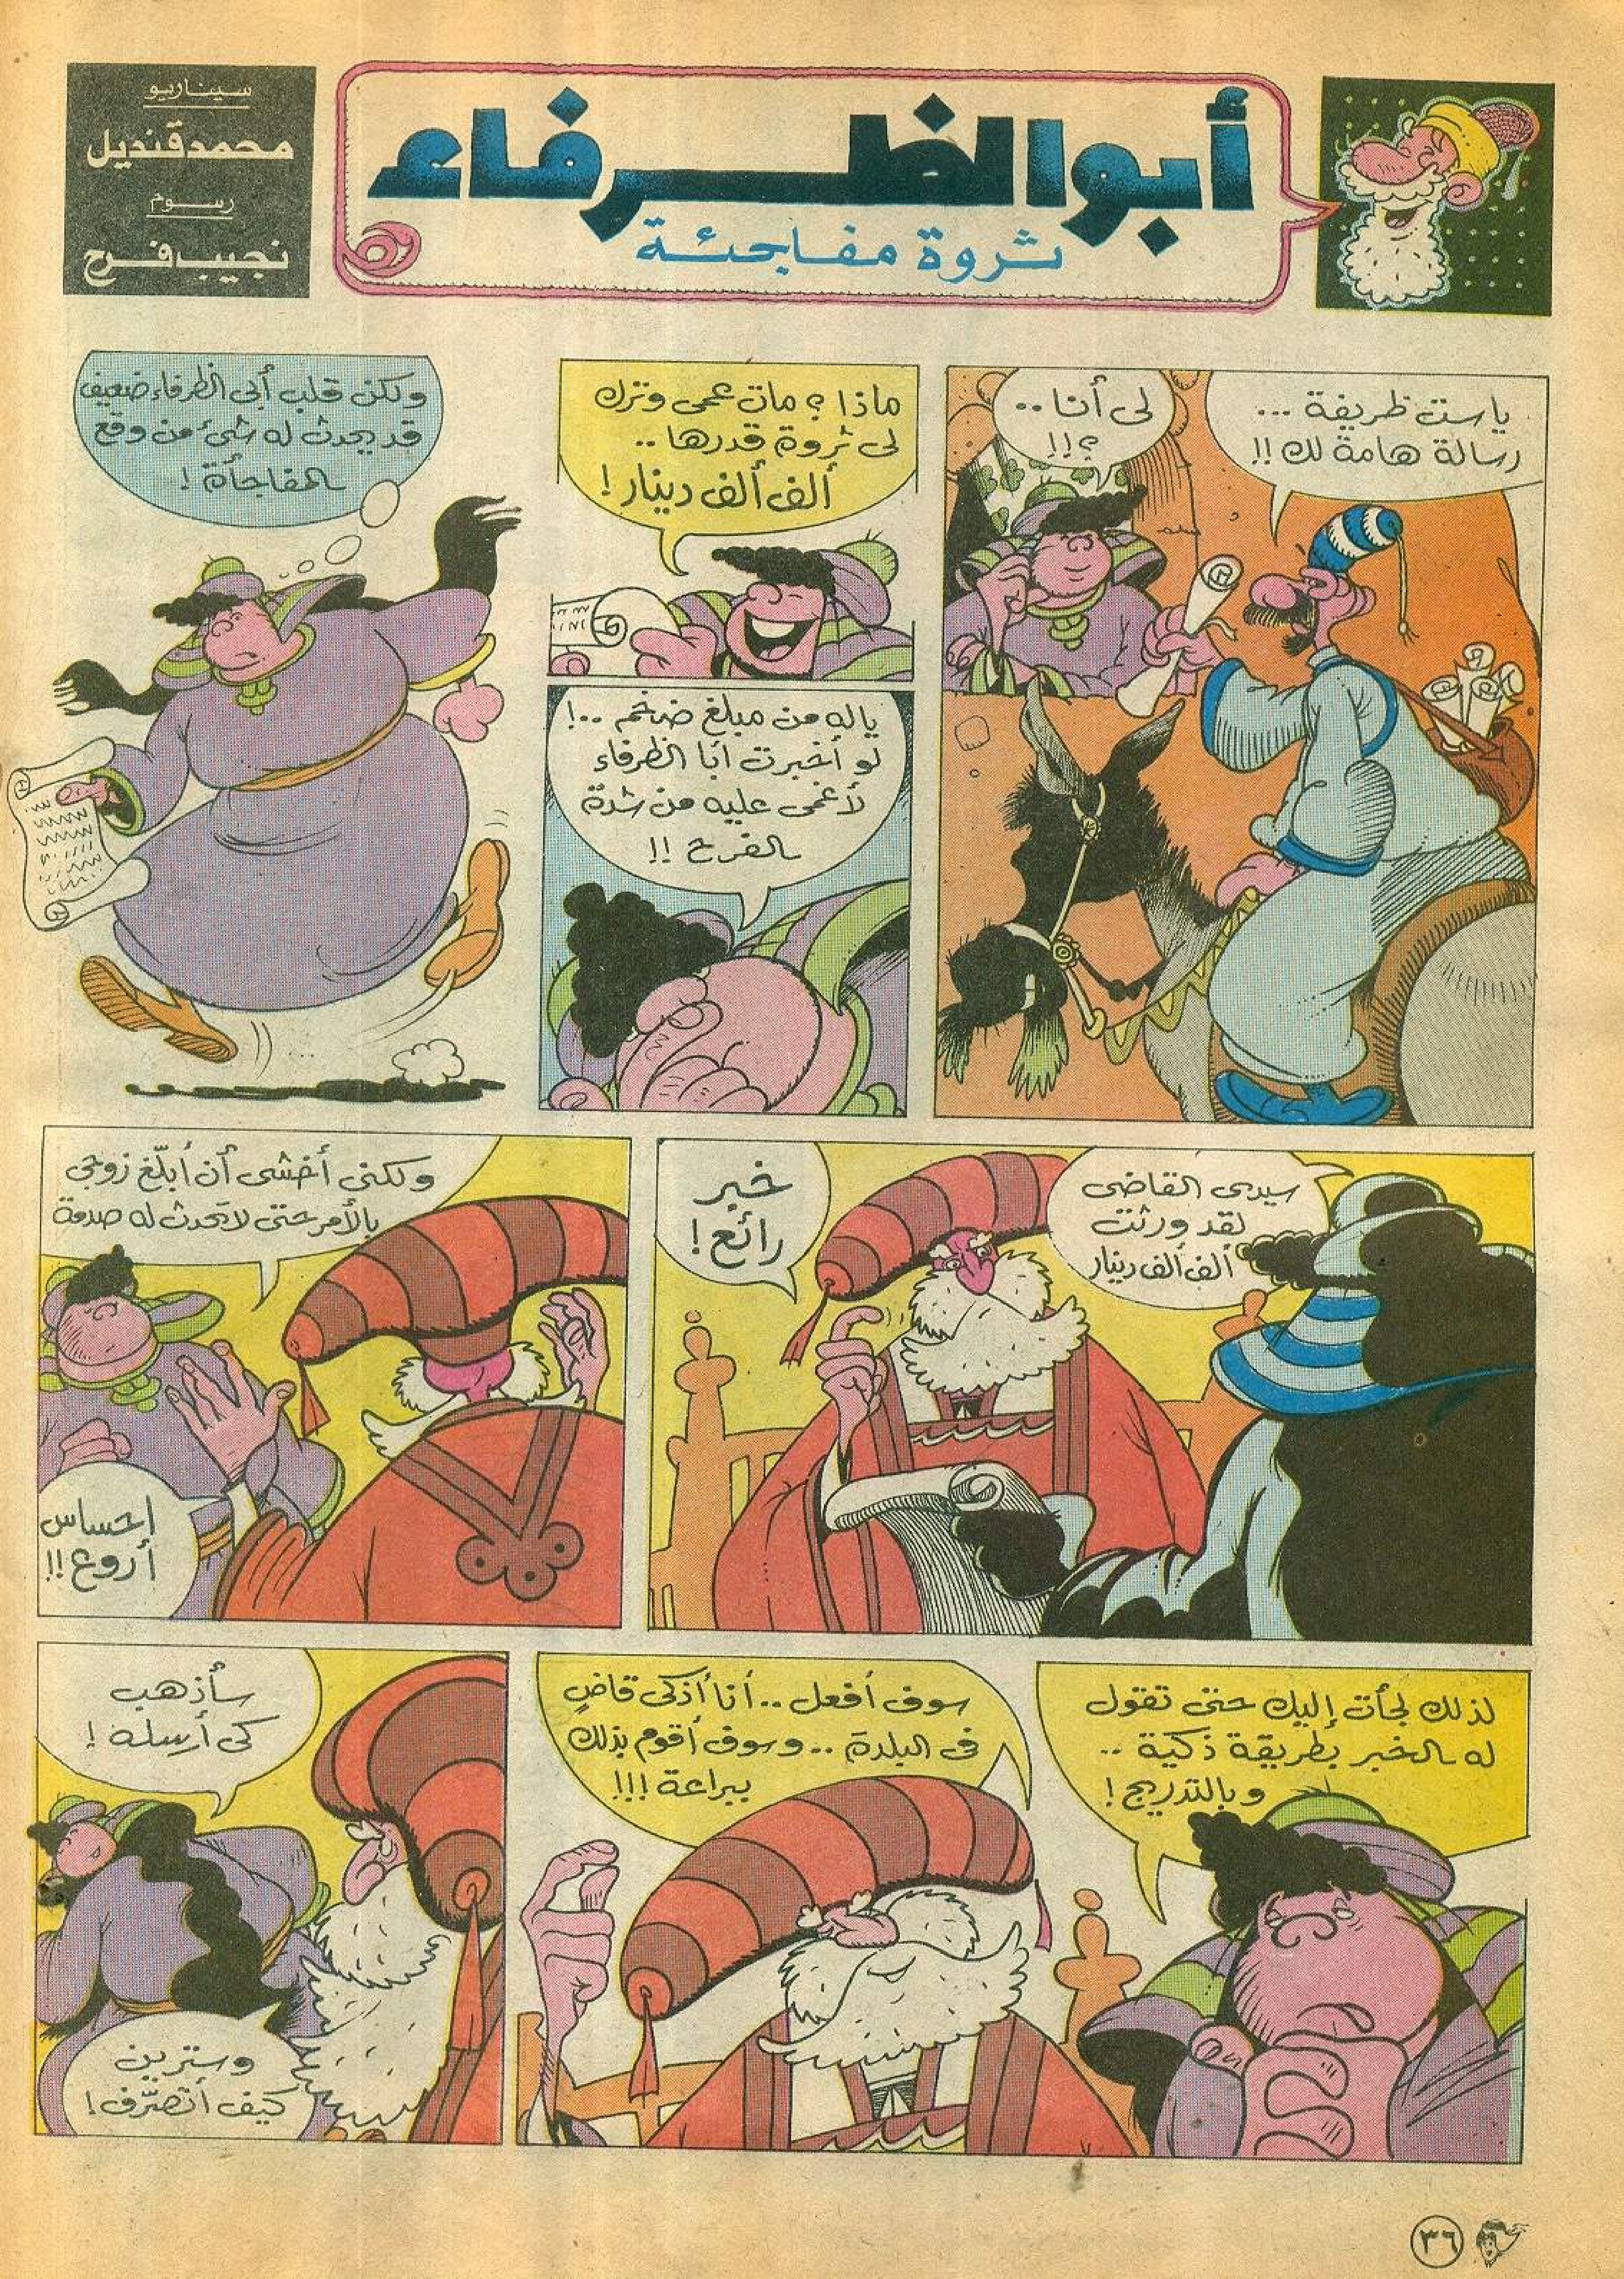 أبو الظرفاء
ثروة مفاجئة
سيناريو
محمد قنديل
رسوم
نجيب فرح
ياست ظريفة ...
رسالة هامة لك !!
لى أنا ..
؟!!
ماذا ؟ مات عمى وترك
لى ثروة قدرها ..
ألف ألف دينار !
ياله من مبلغ ضخم ..!
لو أخبرت أبا الظرفاء
لأغمى عليه من شدة
الفرح !!
ولكن قلب أبى الظرفاء ضعيف
قد يحدث له شىء من وقع
المفاجأة !
سيدى القاضى
لقد ورثت
ألف ألف دينار
خبر
رائع !
ولكنى أخشى أن أبلّغ زوجى
بالأمر حتى لا تحدث له صدمة
احساس
أروع !!
لذلك لجأت إليك حتى تقول
له الخبر بطريقة ذكية ..
وبالتدريج !
سوف أفعل .. أنا أذكى قاضٍ
فى البلدة .. وسوف أقوم بذلك
ببراعة !!!
سأذهب
كى أرسله !
وسترين
كيف أتصرّف !
٣٦